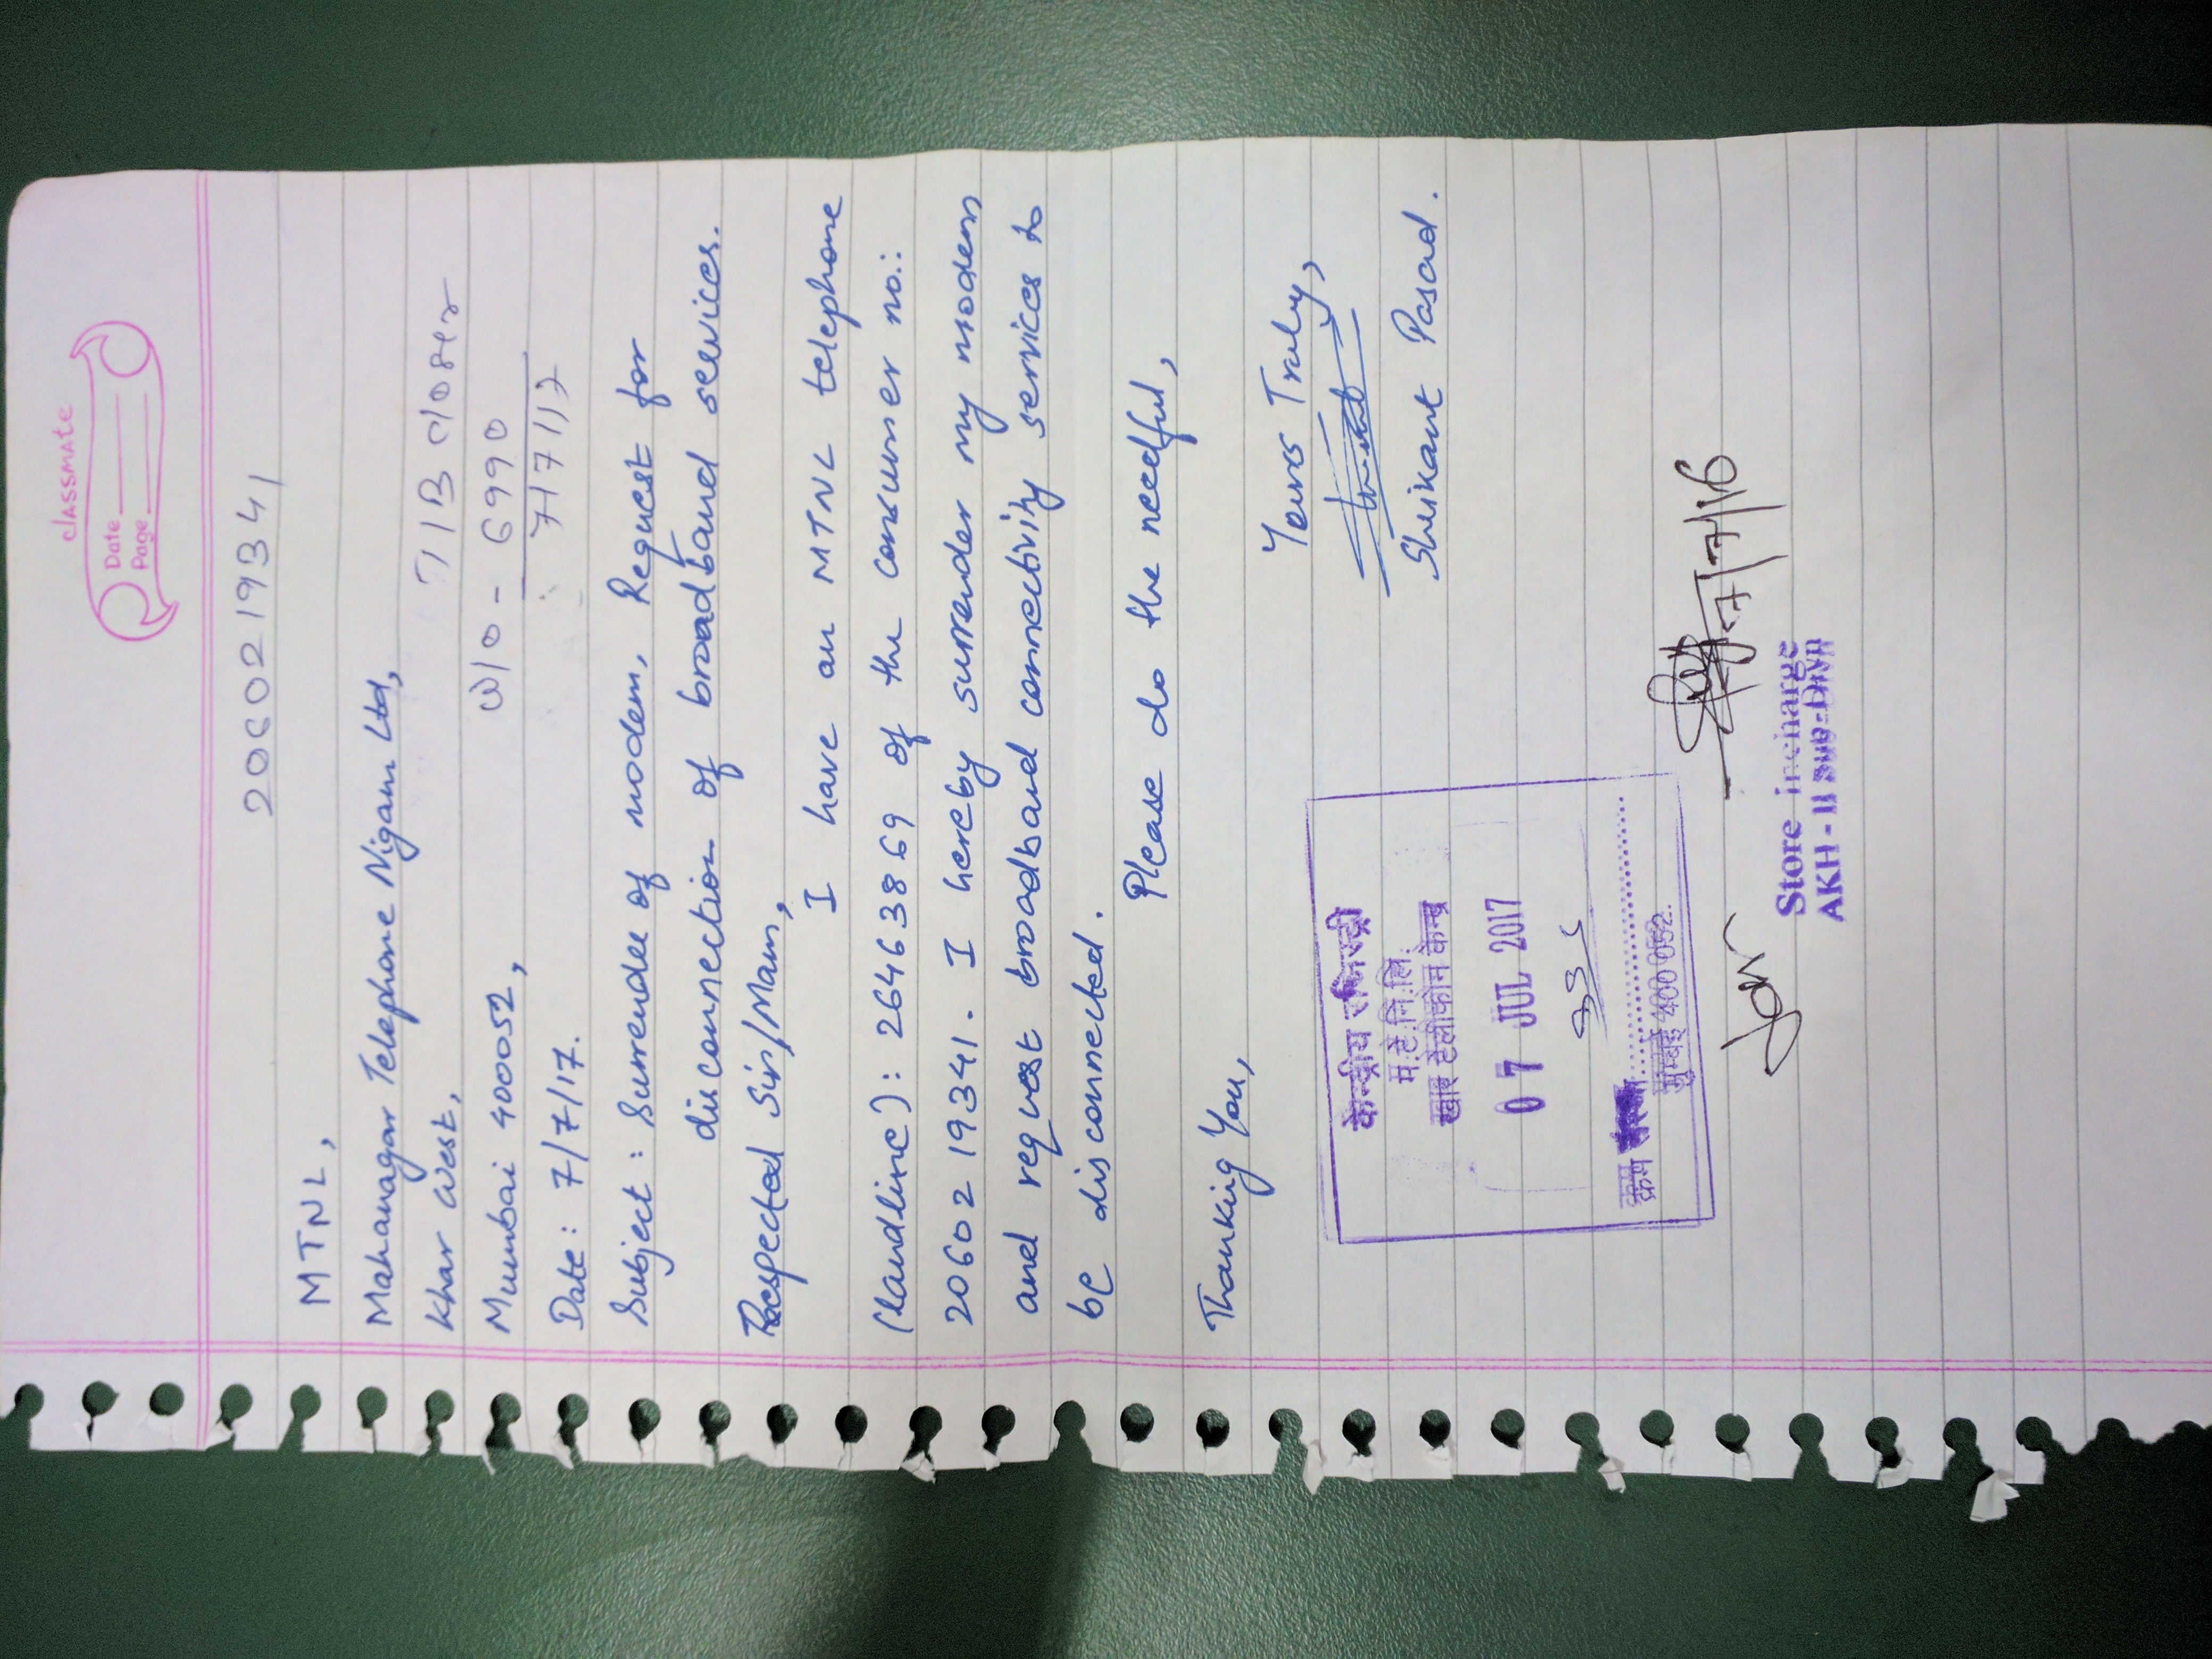 classmate
Date
Page
2060219341
MTNL,
Mahanagar Telephone Nigam Ltd,
Khar West,
TIB closer
Mumbai 400052,
W/O - 6990
Date: 7/7/17.
7/7/17
Subject: Surrender of modem, Request for
disconnection of broadband services.
Respected Sir/Mam,
I have an MTNL telephone
(landline): 26463869 of the consumer no.:
2060219341. I hereby surrender my modem
and request broadband connectivity services to
be disconnected.
Please do the needful,
Thanking You,
Yours Truly,
Shrikant Pasad.
केन्द्रीय रजिस्ट्री
म.टे.नि.लि.
खार टेलीफोन केन्द्र
07 JUL 2017
क्रम
मुम्बई 400 052.
7/7/16
Store incharge
AKH-II Sub-Divn